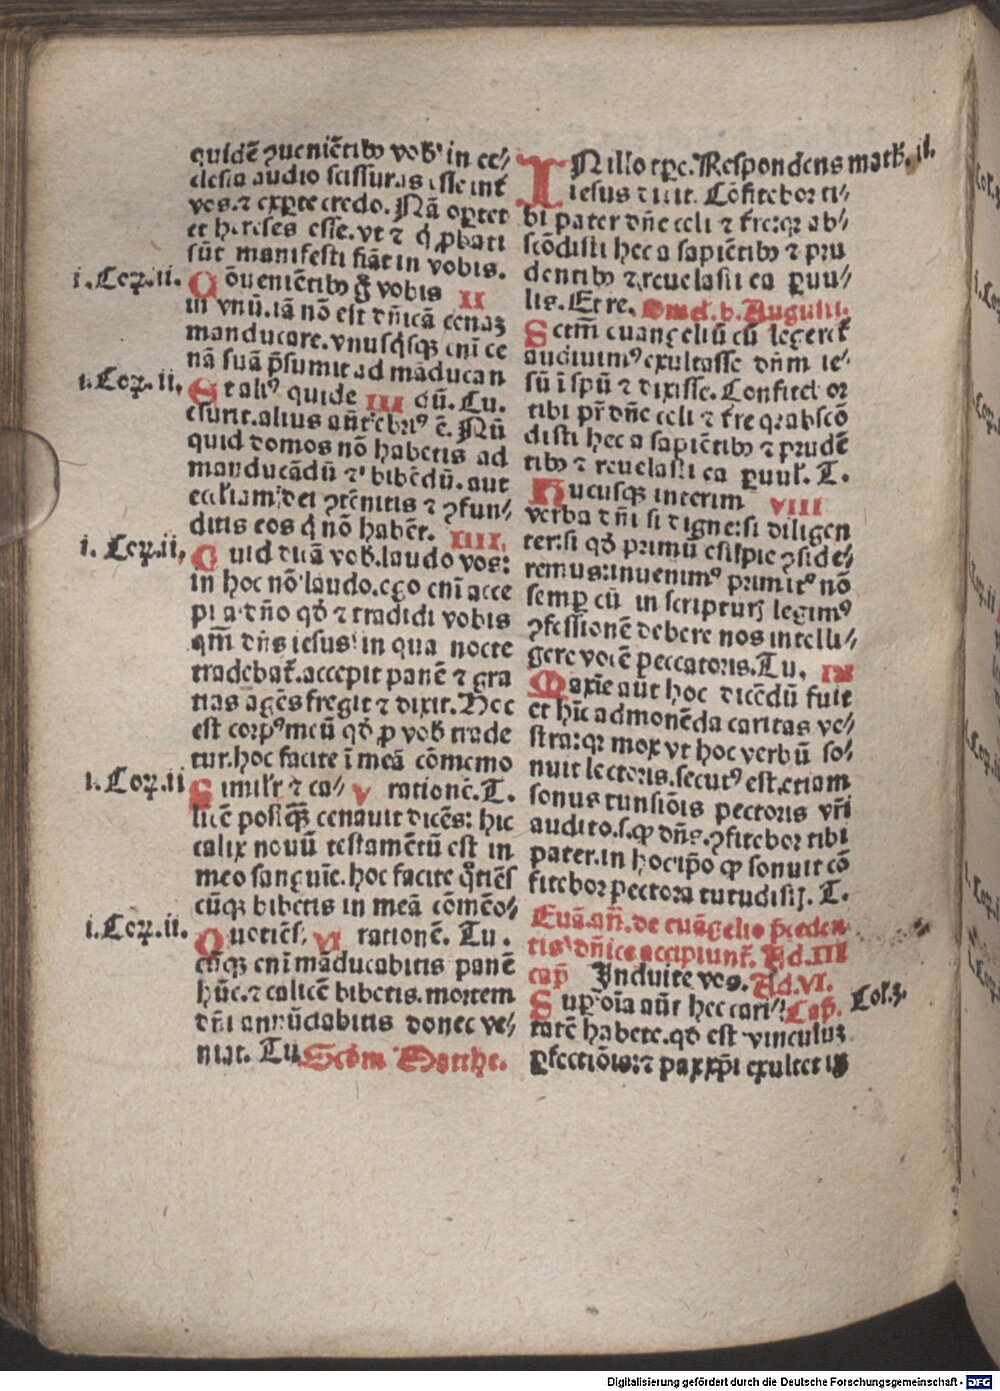 quidē ꝯueniētibꝰ vob̕ in ec⸗
clesia audio scissuras esse int̕
vos.⁊ ex ꝑte credo. Nā oꝑtet
et hereses esse. vt ⁊ q̇ ꝓbati
sūt manifesti fiāt in vobis.
i. Coꝝ. ii. Cōueniētibꝰ g̊ vobis II
in vnū. iā nō est dn̄icā cenaꝫ
manducare. vnusq̇sqꝫ em̄ ce
nā suā p̄sumit ad māducan
i. Coꝝ. ii. Et aliꝰ quidē III dū. Tu.
esurit. alius aūt ebriꝰ ē. Nū
quid domos nō habetis ad
manducādū ⁊ bibēdū. aut
eccl̕iam dei ꝯtēnitis ⁊ ꝯfun⸗
ditis eos q̇ nō habēt. IIII.
i. Coꝝ. ii. Quid dicā vob̕. laudo vos:
in hoc nō laudo. ego em̄ acce
pi a dn̄o qd̕ ⁊ tradidi vobis
qm̄ dn̄s iesus in qua nocte
tradebat̕. accepit panē ⁊ gra
tias agēs fregit ⁊ dixit. Hec
est corpꝰ meū qd̕ ꝓ vob̕ trade
tur. hoc facite ī meā cōmemo
i. Coꝝ. ii Simil̕r ⁊ ca⸗ V rationē. T.
licē postq̄ꝫ cenauit dicēs: hic
calix nouū testamētū est in
meo sanguīe. hoc facite q̊tiēs
cūqꝫ bibetis in meā cōmēo⸗
i. Coꝝ. ii. Quotiēs VI rationē. Tu.
cūqꝫ em̄ māducabitis panē
hūc. ⁊ calicē bibetis. mortem
dn̄i annūciabitis donec ve⸗
niat. Tu Scd̕m Mattheꝰ.
IN illo tꝑe. Respondens math̕. ii.
iesus dixit. Cōfitebor ti⸗
bi pater dn̄e celi ⁊ terre: qꝛ ab⸗
scōdisti hec a sapiētibꝰ ⁊ pru
dentibꝰ ⁊ reuelasti ea ꝑuu⸗
lis. Et re. Omel̕. b. Augusti.
Sctm̄ euangeliū cū legeret̕
audiuimꝰ exultasse dn̄m ie⸗
sū ī spū ⁊ dixisse. Confitebor
tibi pr̄ dn̄e celi ⁊ t̕re qꝛ abscō
disti hec a sapiētibꝰ ⁊ prudē
tibꝰ ⁊ reuelasti ea ꝑuul̕. T.
Hucusqꝫ interim VIII
verba dn̄i si digne: si diligen
ter: si qd̕ primū est ipie ꝯside⸗
remus: inuenimꝰ primitꝰ nō
semꝑ cū in scripturꝭ legimꝰ
ꝯfessionē debere nos intelli⸗
gere vocē peccatoris. Tu. IX
Maxīe aūt hoc dicēdū fuit
et hīc admonēda caritas ve⸗
stra: qꝛ mox vt hoc verbū so⸗
nuit lectoris. secutꝰ est. etiam
sonus tunsiōis pectoris vr̄i
audito. s. ꝙ dn̄s. ꝯfitebor tibi
pater. in hoc ip̄o ꝙ sonuit cō
fitebor pectora tutudistꝭ. T.
Euā. an̄. de euāgelio p̄ceden
tis dn̄ice accipiunt̕. Ad. III
cap̄ Induite vos. Ad. VI.
Suꝑ oīa aūt hec cari⸗ Cap̄. Col. 3.
tatē habete. qd̕ est vinculuꝫ
ꝑfectiōis: ⁊ pax xp̄i exultet in
Digitalisierung gefördert durch die Deutsche Forschungsgemeinschaft - DFG